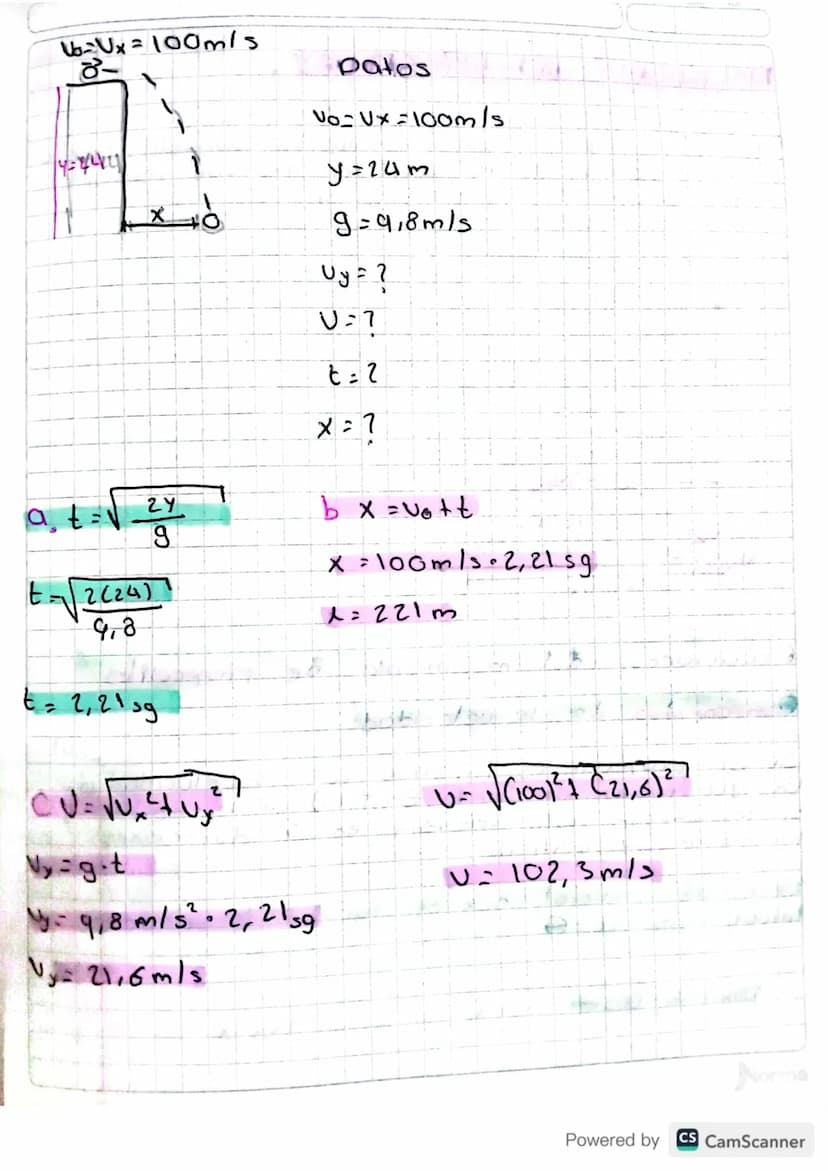 Vo=Vx=100m/s
Datos
Vo=Vx=100m/s
y=24m
g=9,8m/s
Vy=?
V=?
t=?
x=?
x
a, t=√2y/g
t=√2(24)/9,8
t=2,21sg
b x=Vo+t
x=100m/s•2,21sg
x=221m
C V=√Vx²+Vy²
Vy=g.t
Vy=9,8m/s²•2,21sg
Vy=21,6m/s
V=√(100)²+(21,6)²
V=102,3m/s
Norma
Powered by CS CamScanner